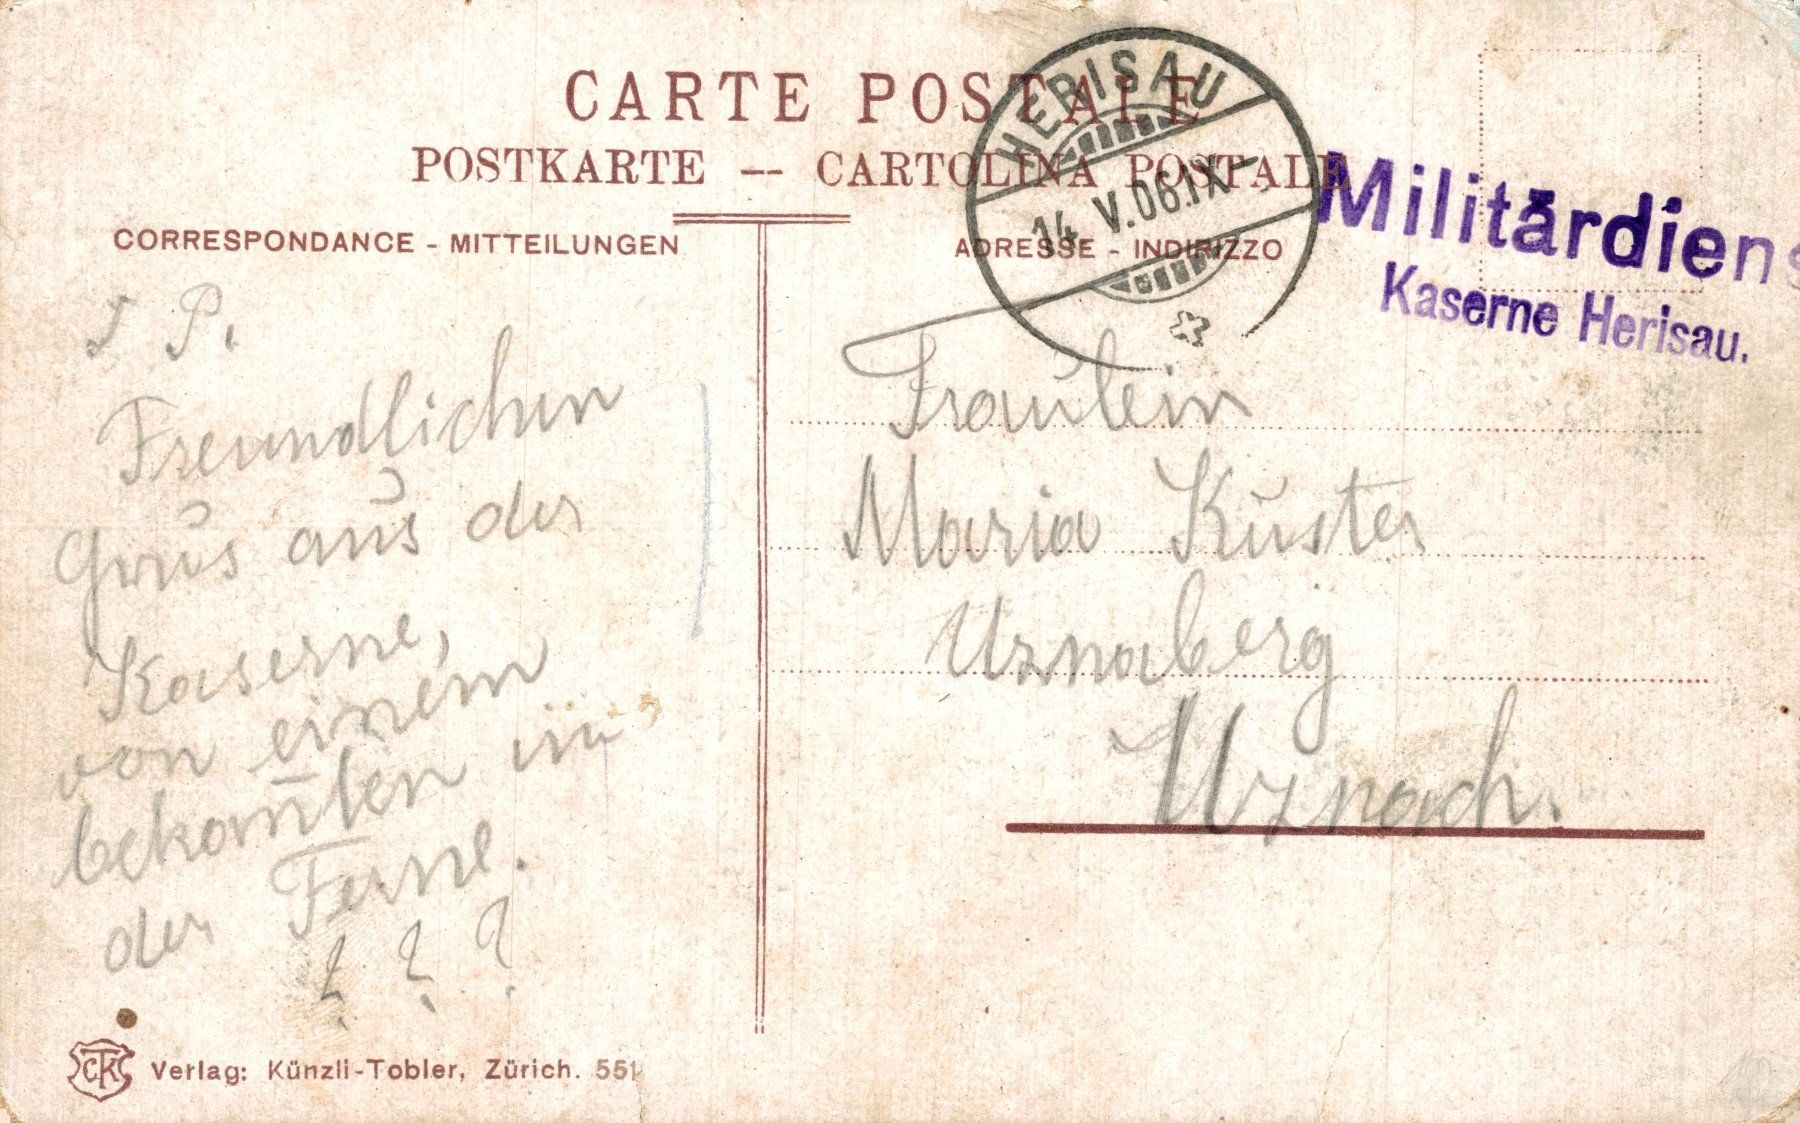 CARTE POSTALE
POSTKARTE -- CARTOLINA POSTALE
CORRESPONDANCE - MITTEILUNGEN
ADRESSE - INDIRIZZO
HERISAU
14.V.06.IX-
Militärdiens
Kaserne Herisau.
P.
Freundlichen
Grus aus der
Kaserne,
von einem
bekan̄ten in
der Ferne.
? ? ?
Fraulein
Maria Kuster
Uznaberg
Uznach.
CTK
Verlag: Künzli-Tobler, Zürich. 551